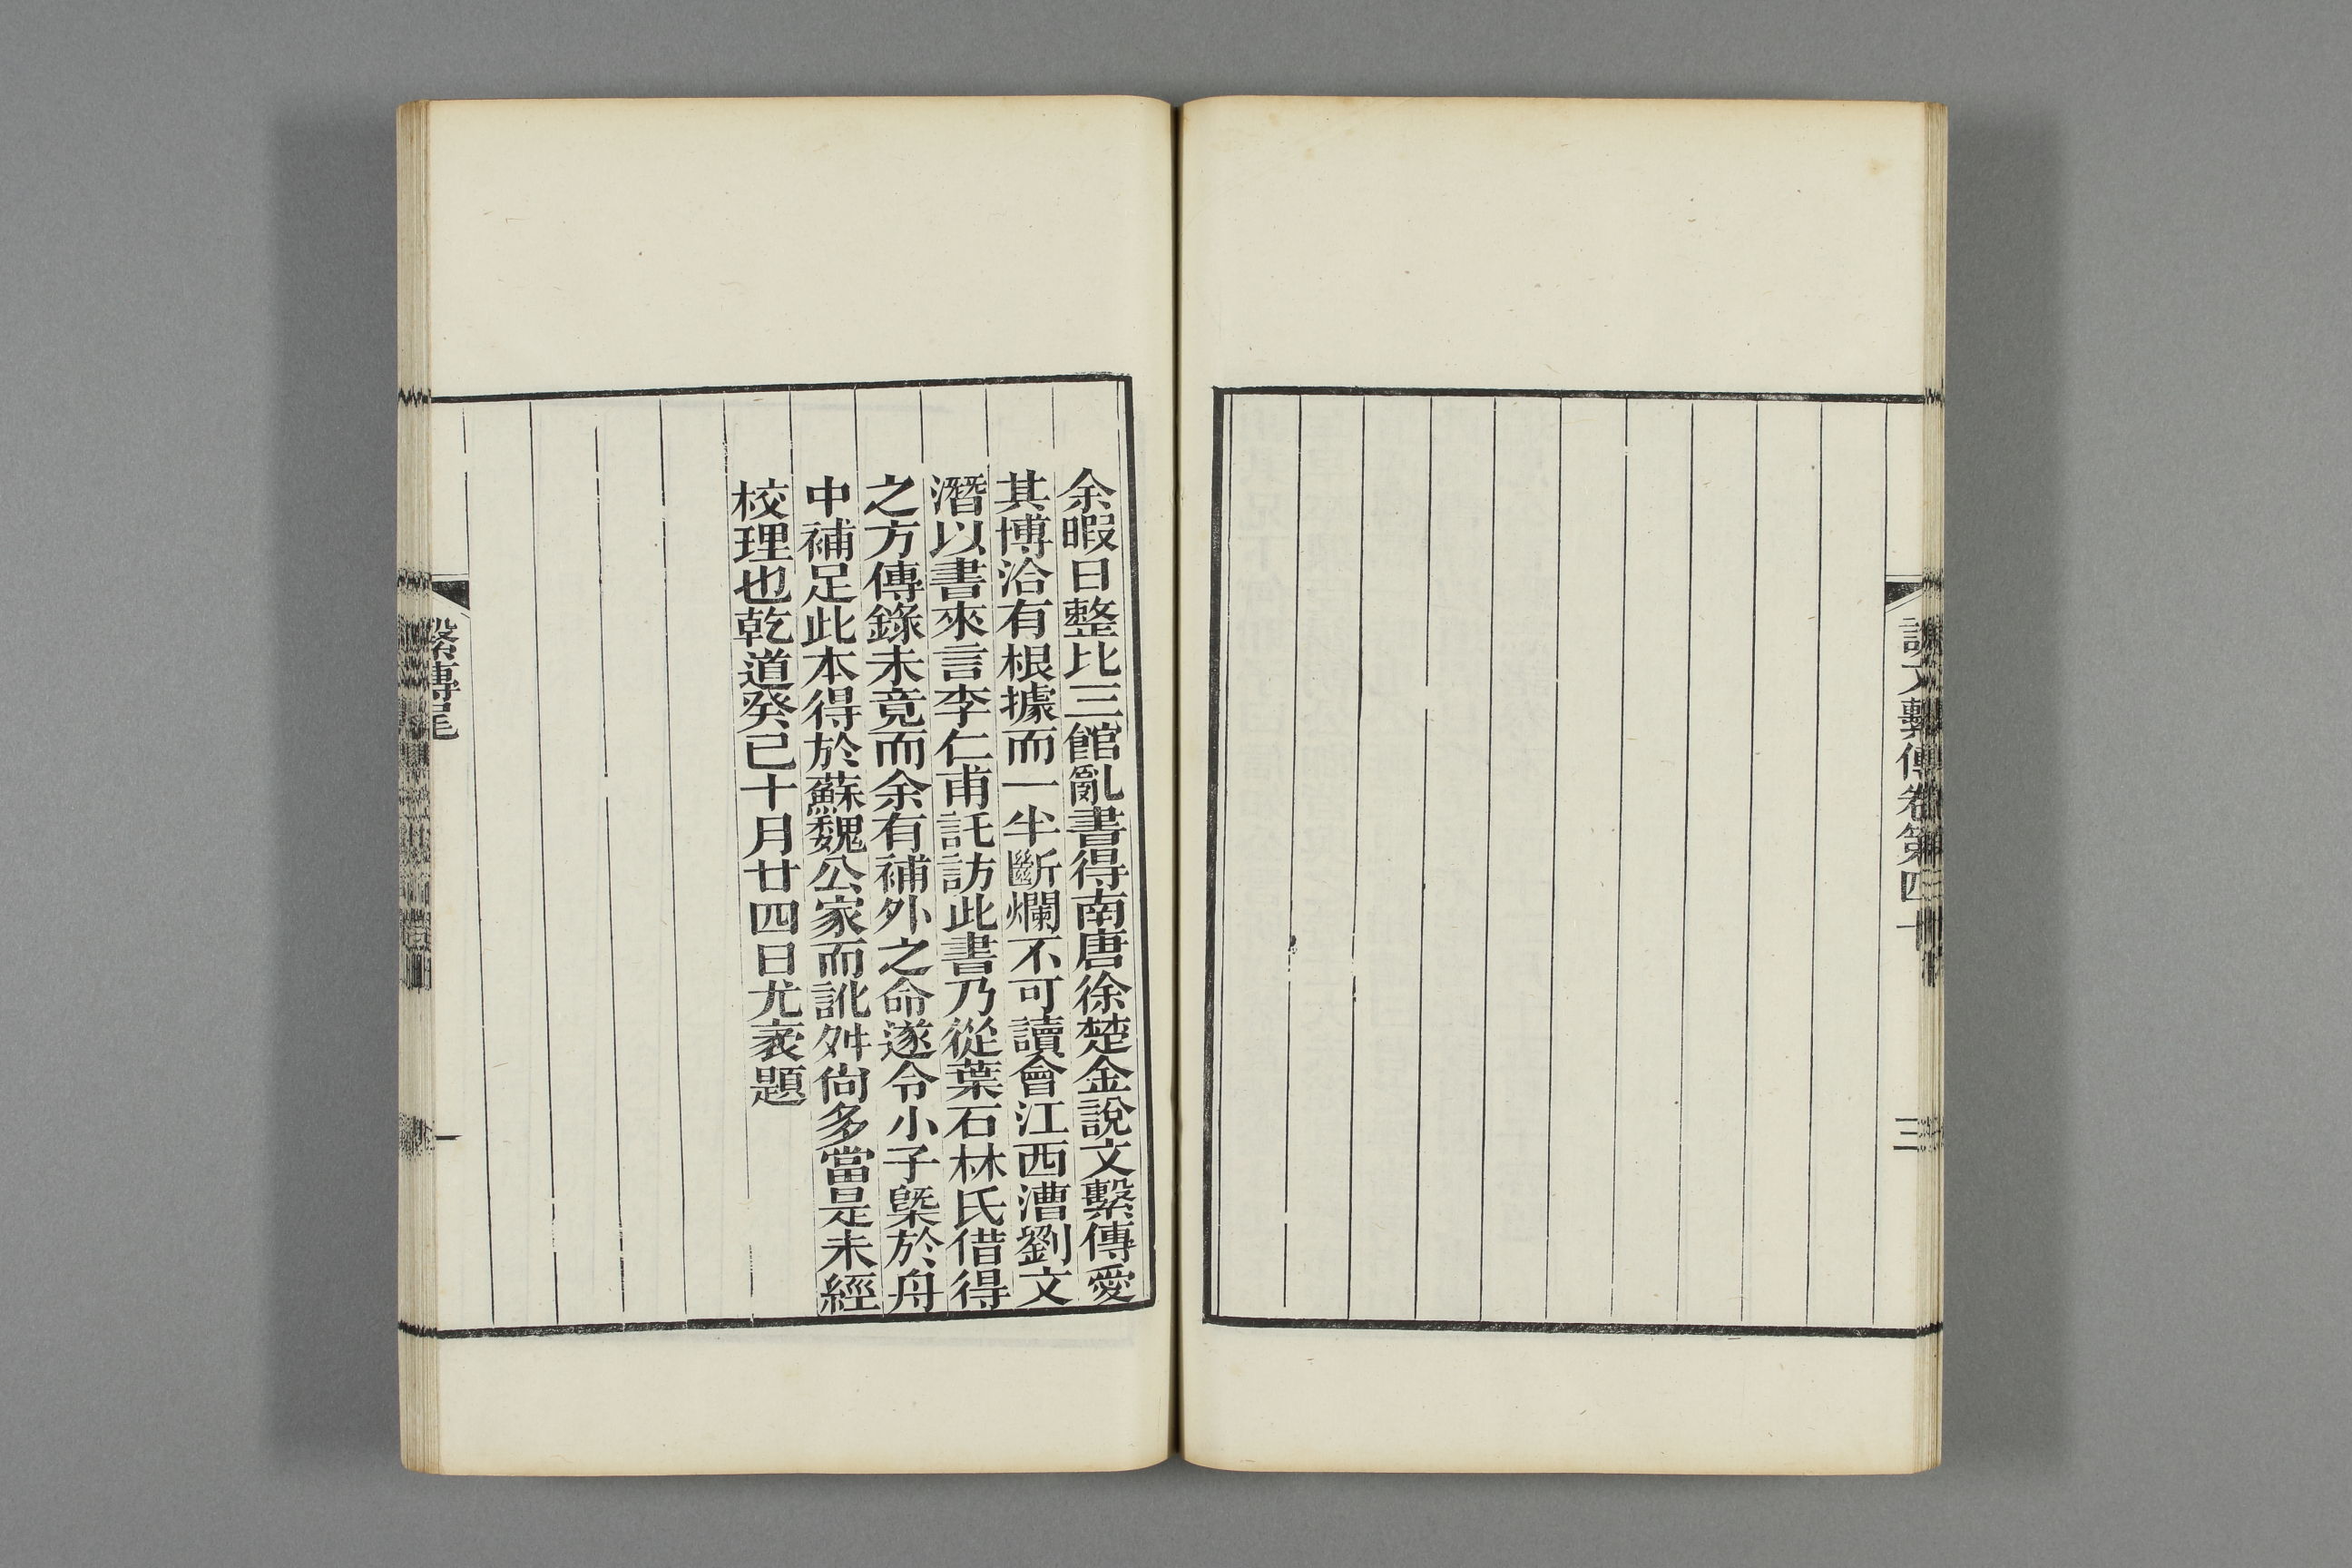 說文繫傳卷第四十
三
余暇日整比三館亂書得南唐徐楚金說文繫傳愛
其博洽有根據而一半斷爛不可讀會江西漕劉文
潛以書來言李仁甫託訪此書乃從葉石林氏借得
之方傳錄未竟而余有補外之命遂令小子槩於舟
中補足此本得於蘇魏公家而訛舛尙多當是未經
校理也乾道癸巳十月廿四日尤袤題
繫傳尾
一